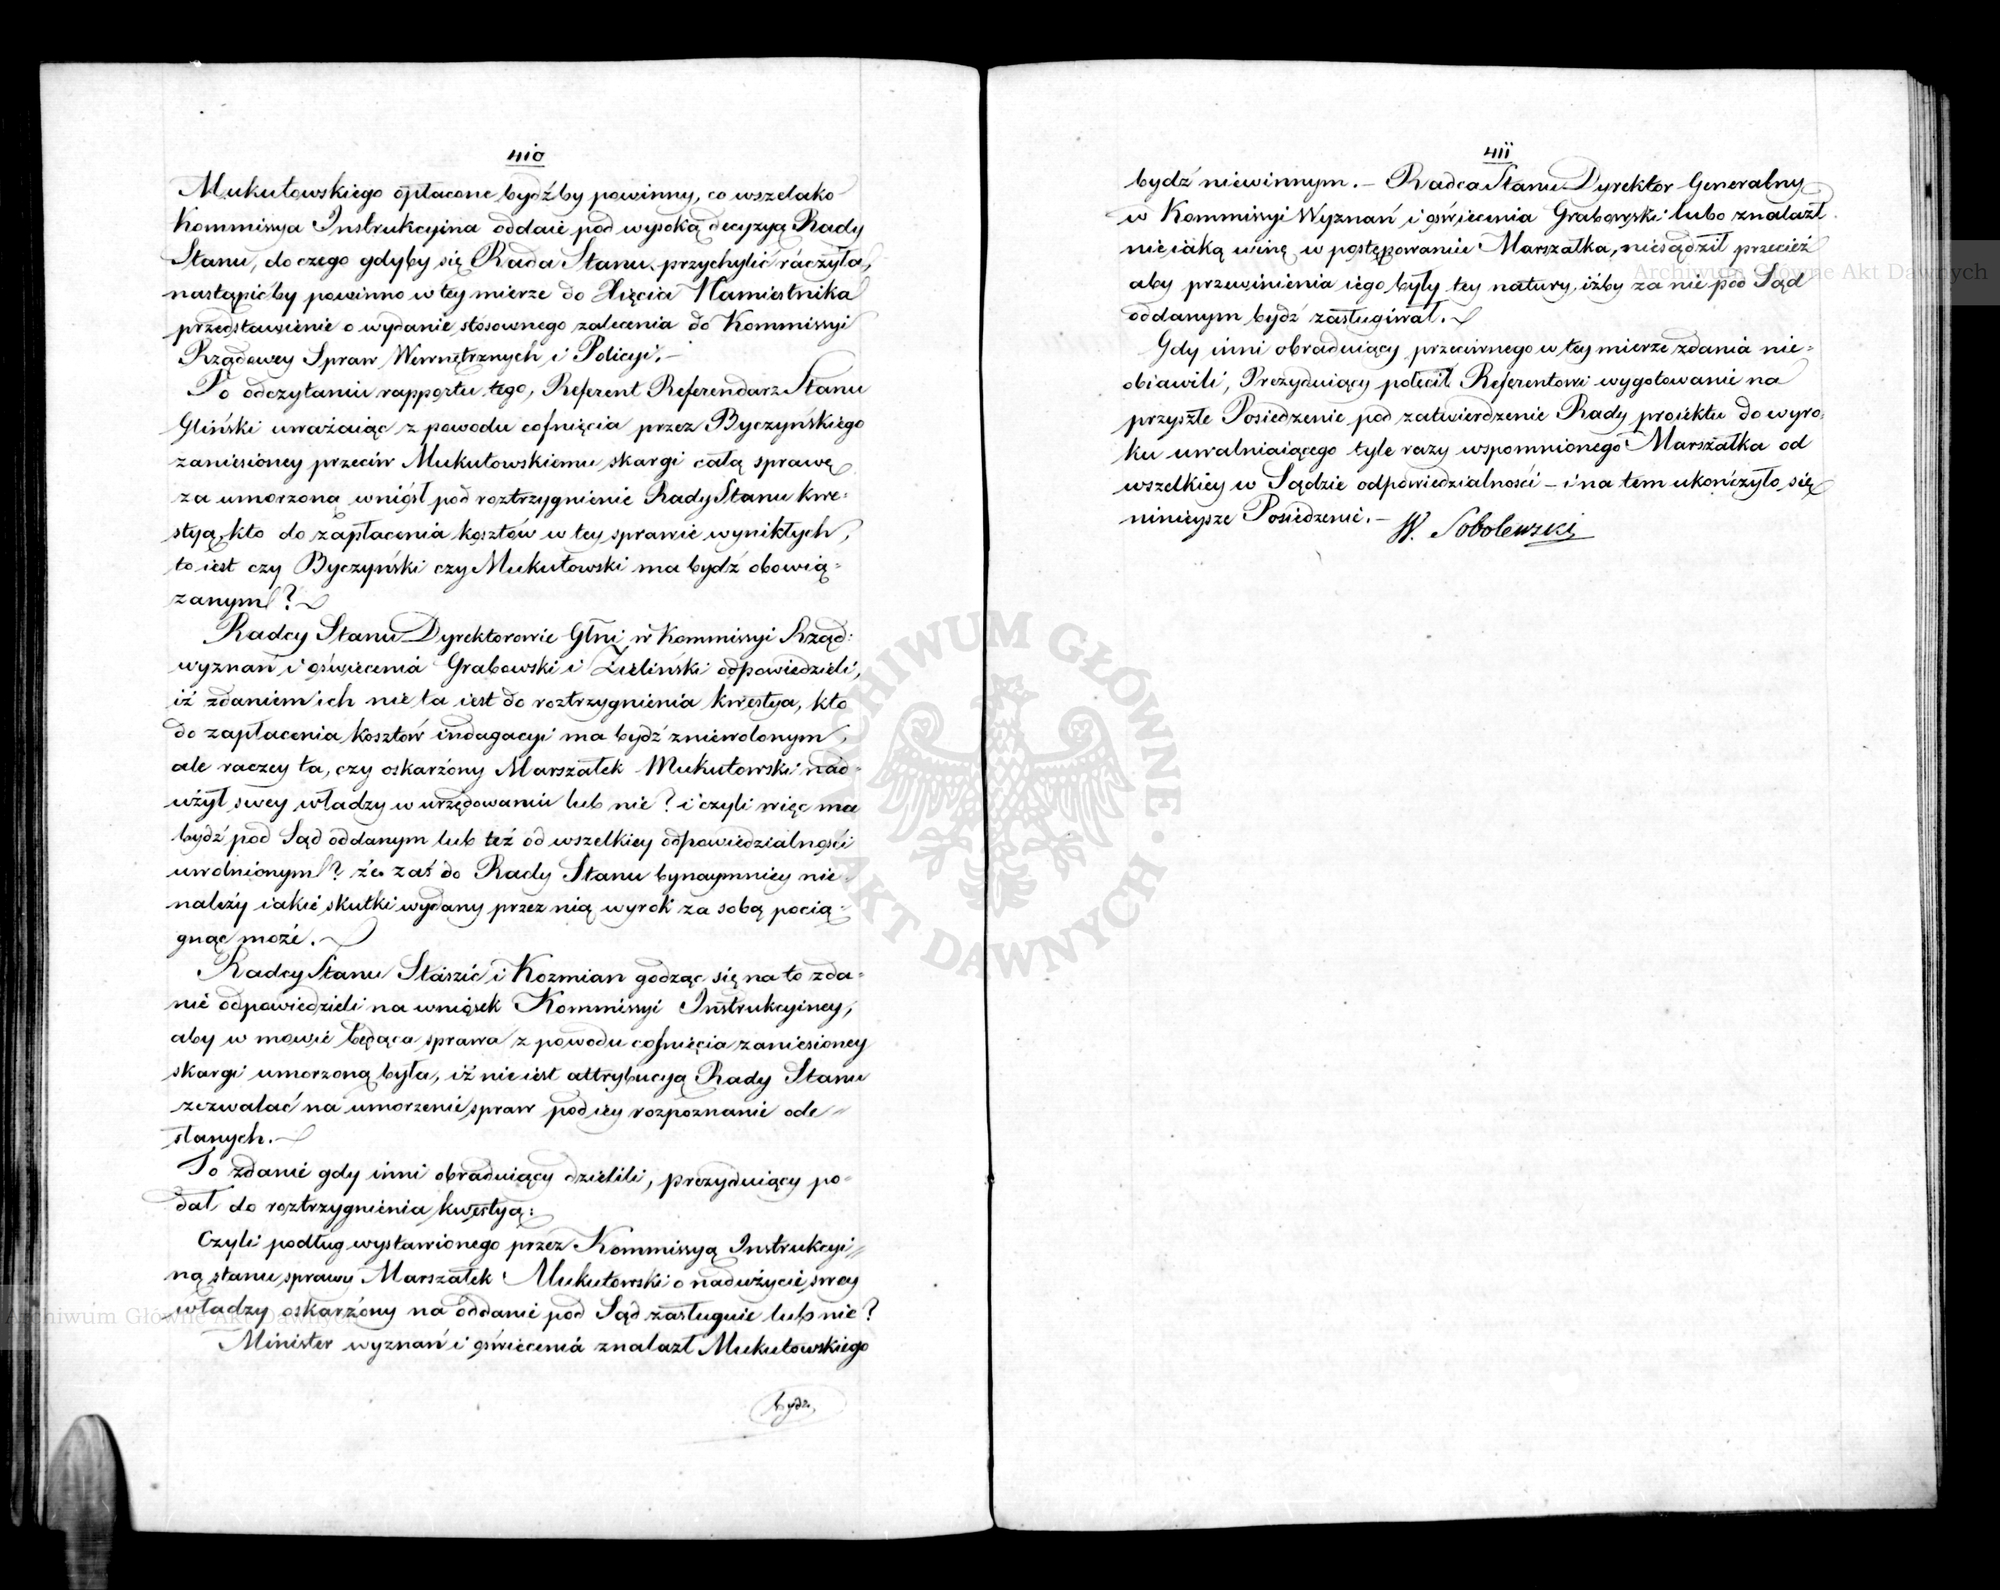 410
Mukułowskiego opłacone bydź by powinny, co wszelako
Kommissya Instrukcyina oddaie pod wysoką decyzyą Rady
Stanu, do czego gdyby się Rada Stanu przychylić raczyła,
nastąpić by powinno w tey mierze do Xięcia Namiestnika
przedstawienie o wydanie stosownego zalecenia do Kommissyi
Rządowey Spraw Wewnętrznych i Policyi. –
Po odczytaniu rapportu tego, Referent Referendarz Stanu
Gliński uważaiąc z powodu cofnięcia przez Byczyńskiego
zaniesioney przeciw Mukułowskiemu skargi całą sprawę
za umorzoną wniósł pod roztrzygnienie Rady Stanu kwe=
styą, kto do zapłacenia kosztów w tey sprawie wynikłych,
to iest czy Byczyński czy Mukułowski ma bydź obowią=
zanym?
Radcy Stanu Dyrektorowie Głni w Kommissyi Rząd:
wyznań i oświecenia Grabowski i Zieliński odpowiedzieli,
iż zdaniem ich nie ta iest do roztrzygnienia kwestya, kto
do zapłacenia kosztów indagacyi ma bydź zniewolonym,
ale raczey ta, czy oskarżony Marszałek Mukułowski nad=
użył swey władzy w urzędowaniu lub nie? i czyli więc ma
bydź pod Sąd oddanym lub też od wszelkiey odpowiedzialności
uwolnionym? że zaś do Rady Stanu bynaymniey nie=
należy iakie skutki wydany przez nią wyrok za sobą pocią=
gnąć może. –
Radcy Stanu Staszic i Kozmian godząc się na to zda=
nie odpowiedzieli na wniosek Kommissyi Instrukcyiney,
aby w mowie będąca sprawa z powodu cofnięcia zaniesioney
skargi umorzoną była, iż nie iest attrybucyą Rady Stanu
zezwalać na umorzenie spraw pod iey rozpoznanie ode=
słanych. –
To zdanie gdy inni obraduiący dzielili, prezyduiący po=
dał do roztrzygnienia kwestyą:
Czyli podług wystawionego przez Kommissyą Instrukcyi=
ną stanu sprawy Marszałek Mukułowski o nadużycie swey
władzy oskarżony na oddanie pod Sąd zasługuie lub nie?
Minister wyznań i oświecenia znalazł Mukułowskiego
bydź,
411
bydź niewinnym. – Radca Stanu Dyrektor Generalny
w Kommissyi Wyznań i oświecenia Grabowski lubo znalazł
nieiaką winę w postępowaniu Marszałka, niesądził przecież
aby przewinienia iego były tey natury, iżby za nie pod Sąd
oddanym bydź zasługiwał. –
Gdy inni obraduiący przeciwnego w tey mierze zdania nie=
obiawili, Prezyduiący polecił Referentowi wygotowanie na
przyszłe Posiedzenie pod zatwierdzenie Rady proiektu do wyro=
ku uwalniaiącego tyle razy wspomnionego Marszałka od
wszelkiey w Sądzie odpowiedzialności – i na tem ukończyło się
ninieysze Posiedzenie. –
W. Sobolewski
ARCHIWUM GŁÓWNE AKT DAWNYCH
Archiwum Główne Akt Dawnych
Archiwum Główne Akt Dawnych